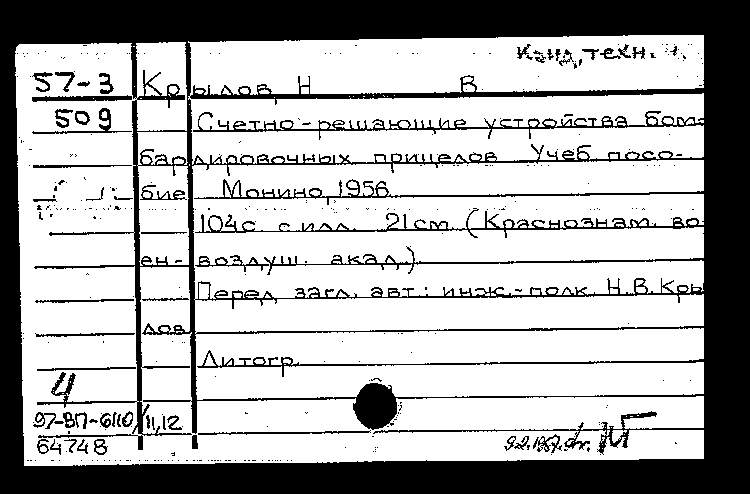 Канд. техн. н.
57-3 Крылов, Н В
509 Счетно-решающие устройства бом-
бардировочных прицелов Учеб посо-
бие Монино, 1956
104с. с илл. 21см. (Краснознам. во
ен-воздуш. акад.)
Перед загл. авт.: инж.-полк Н.В. Кры
лов
Литогр.
4
97-ВП-6110/11,12
64748